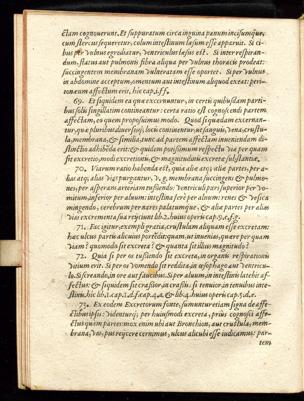 ctam cognoscunt. Et suppuratum circa inguina panum incisumque,
cum stercus sequeretur, colum intestinum læsum esse apparuit. Si ci-
bus per vulnus egrediatur, ventriculus læsus est. Si inter respiran-
dum, flatus aut pulmonis fibra aliqua per vulnus thoracis prodeat:
succingentem membranam vulneratam esse oportet. Si per vulnus,
in abdomine acceptum, omentum aut intestinum aliquod exeat: peri-
tonæum affectum erit, hic cap.
69. Et siquidem ea quæ excernuntur, in certis quibusdam parti-
bus solis singillatim contineantur: certa ratio est cognoscendi partem
affectam, eo quem proposuimus modo. Quod si quædam excernan-
tur, quæ pluribus diversisque locis continentur, ut sanguis, vena, crustu-
la, membrana, & similia, tunc ad partem affectam inveniendam di-
stinctio adhibenda erit: & quidem primum respectu viæ per quam
fit excretio, modi excretionis, & magnitudinis excretæ substantiæ.
70. Viarum ratio habenda est, quia aliæ atque aliæ partes, per a-
lias atque alias vias purgantur, v. g. membrana succingens & pulmo-
nes, per asperam arteriam tussiendo: ventriculi pars superior per vo-
mitum, inferior per alvum: intestina ferè per alvum: renes & vesica
mingendo, cerebrum per nares palatumque, & aliæ partes per alias
vias excrementa sua rejiciunt lib. 2. huius operis cap.
71. Excipitur, exempli gratia, crustulam aliquam esse excretam:
hæc ulcus partis alicuius porrò quam ut invenias, quære per quam
viam? quomodo sit excreta? & quanta sit illius magnitudo?
72. Quia si per os tussiendo sit excreta, in organis respirationis
ulcus erit. Si per os vomendo sit reddita, in œsophago aut ventricu-
lo. Si screando, in ore aut faucibus. Si per alvum, in intestinis latebit af-
fectus: & siquidem sit crassior, in crassis: si tenuior, in tenuibus inte-
stinis, hic lib. 1. cap. & lib. 4. huius operis cap.
73. Ex eodem Excretorum fonte, sumuntur etiam signa de affe-
ctibus ipsis: videnturque per huiusmodi excreta, prius cognosci affe-
ctus quàm partes: mox enim ubi aut Bronchion, aut crustula, mem-
brana, vas, pus rejicere cernimus, ulcus alicubi esse iudicamus: par-
tem